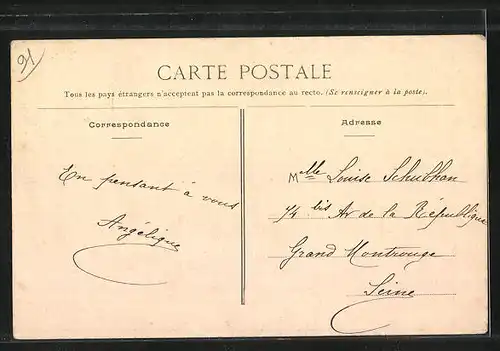 91
CARTE POSTALE
Tous les pays étrangers n'acceptent pas la correspondance au recto. (Se renseigner à la poste).
Correspondance
En pensant à vous
Angélique
Adresse
Mlle Louise Schubhan
74 bis Av de la République
Grand Montrouge
Seine